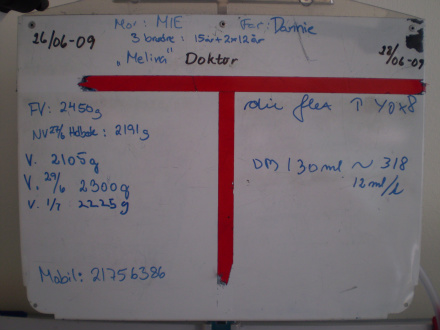 Mor: MIE Far: Dannie
26/06-09 3 brødre: 15 år + 2x12 år 22/06-09
"Melina" Doktor
FV: 2450g
div flex P
NV 27/6 Holbæk: 2191g
V. 2105g
DM 130ml ~ 318
V. 29/6 2300g
12ml/
V. 1/7 2225g
Mobil: 21756386